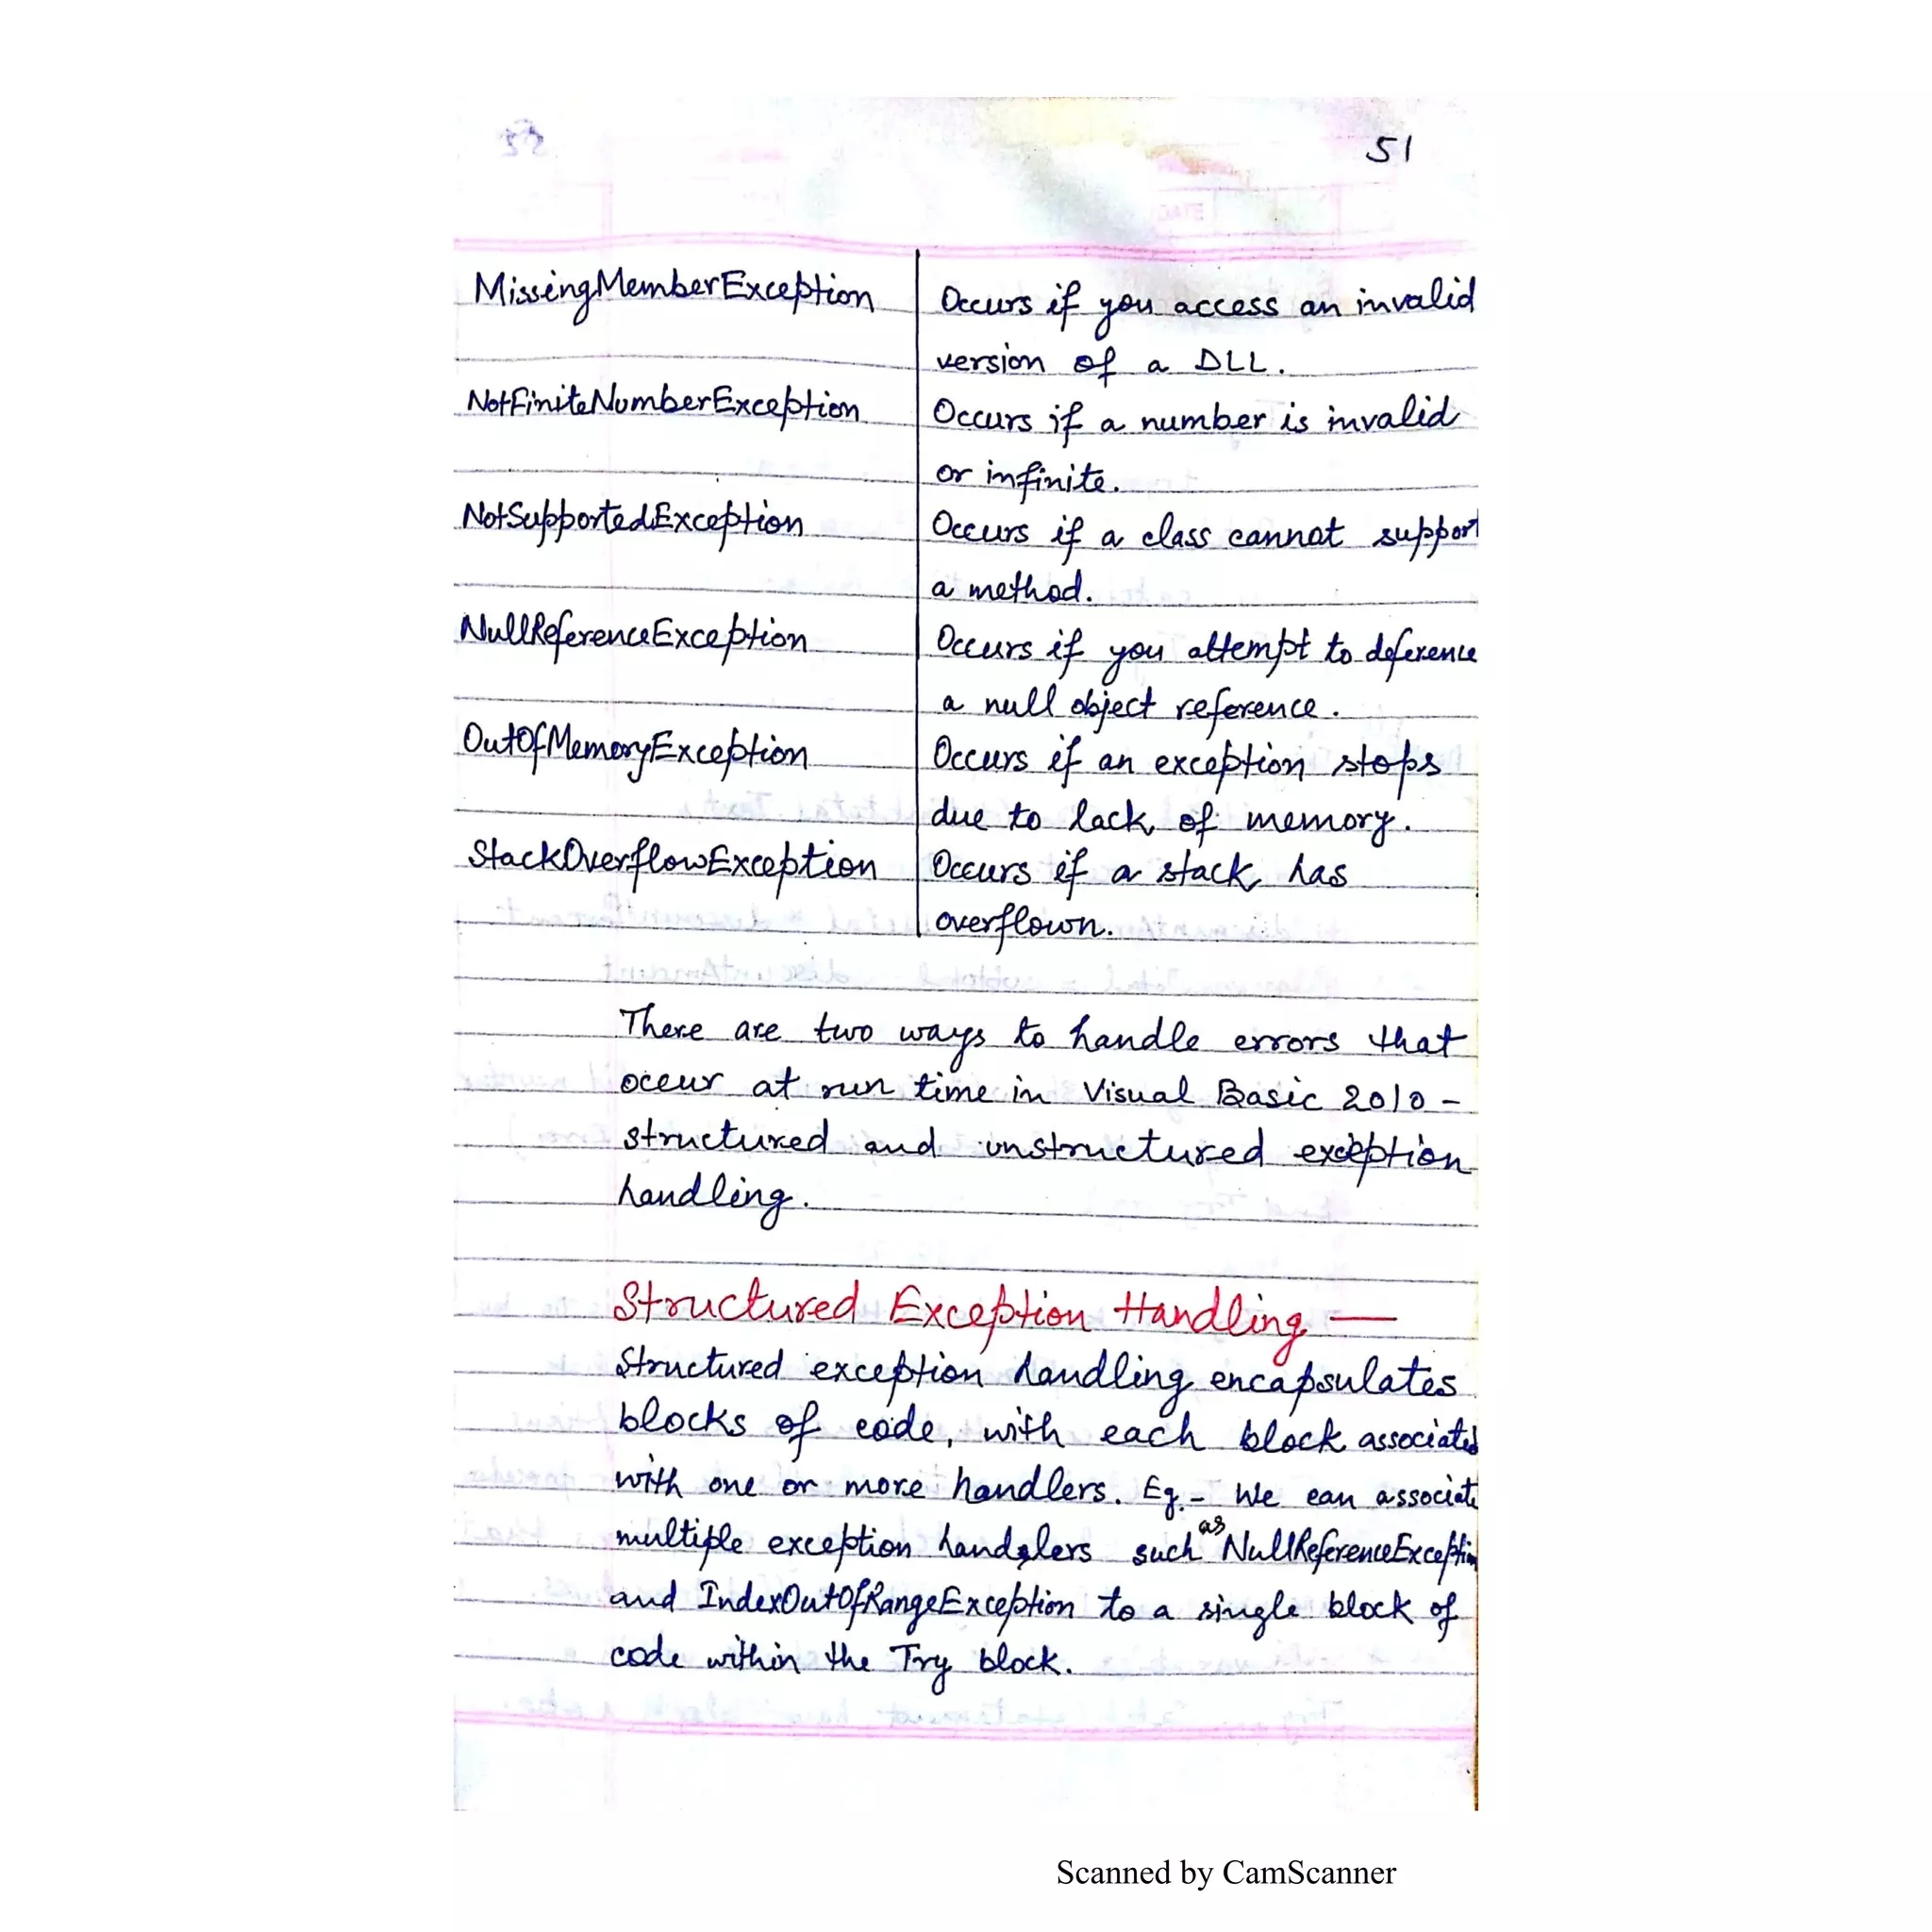 51
MissingMemberException Occurs if you access an invalid
version of a DLL.
NotFiniteNumberException Occurs if a number is invalid
or infinite.
NotSupportedException Occurs if a class cannot support
a method.
NullReferenceException Occurs if you attempt to deference
a null object reference.
OutOfMemoryException Occurs if an exception stops
due to lack of memory.
StackOverflowException Occurs if a stack has
overflown.
There are two ways to handle errors that
occur at run time in Visual Basic 2010 -
structured and unstructured exception
handling.
Structured Exception Handling —
Structured exception handling encapsulates
blocks of code, with each block associated
with one or more handlers. Eg.- We can associate
multiple exception handlers such as NullReferenceException
and IndexOutOfRangeException to a single block of
code within the Try block.
Scanned by CamScanner